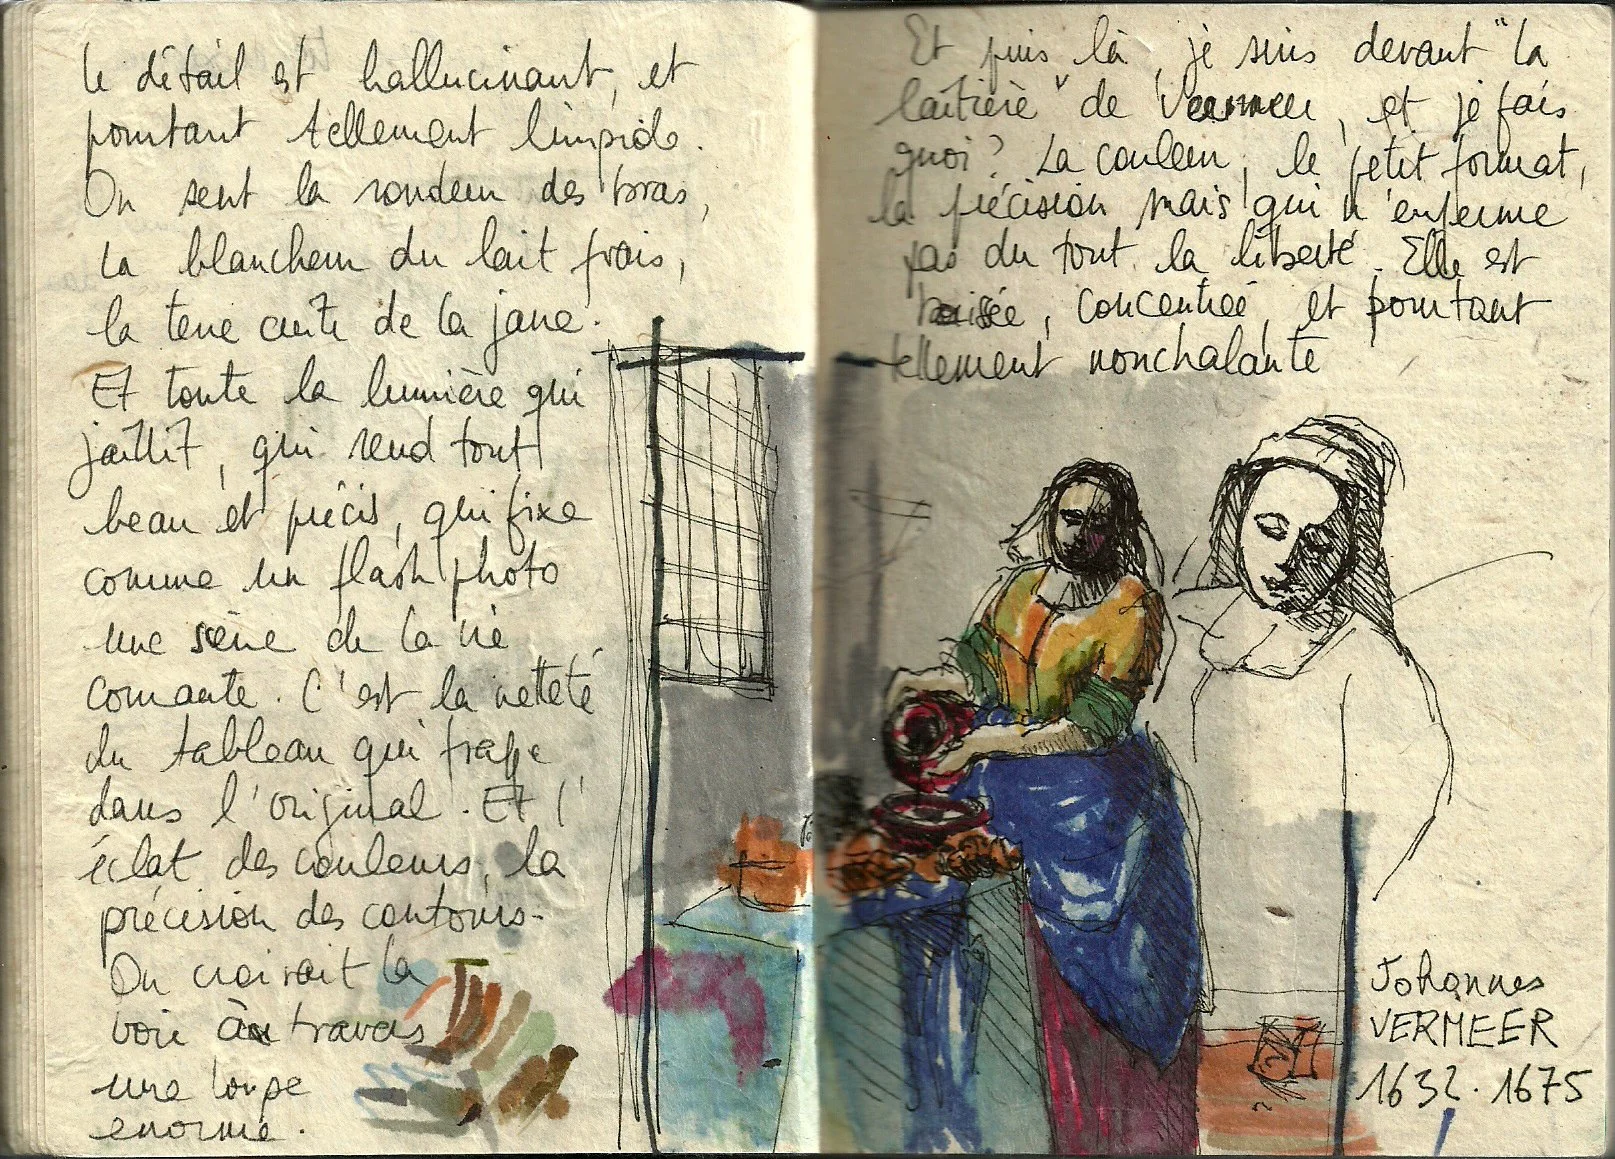 le détail est hallucinant, et
pourtant tellement limpide.
On sent la rondeur des bras,
la blancheur du lait frais,
la terre cuite de la jarre.
Et toute la lumière qui
jaillit, qui rend tout
beau et précis, qui fixe
comme un flash photo
une scène de la vie
courante. C'est la netteté
du tableau qui frappe
dans l'original. Et l'
éclat des couleurs, la
précision des contours.
On croirait la
voir au travers
une loupe
enorme.
Et puis là, je suis devant "la
laitière" de Vermeer, et je fais
quoi? La couleur, le petit format,
la précision mais qui n'enferme
pas du tout la liberté. Elle est
concentrée, et pourtant
tellement nonchalante
Johannes
VERMEER
1632.1675